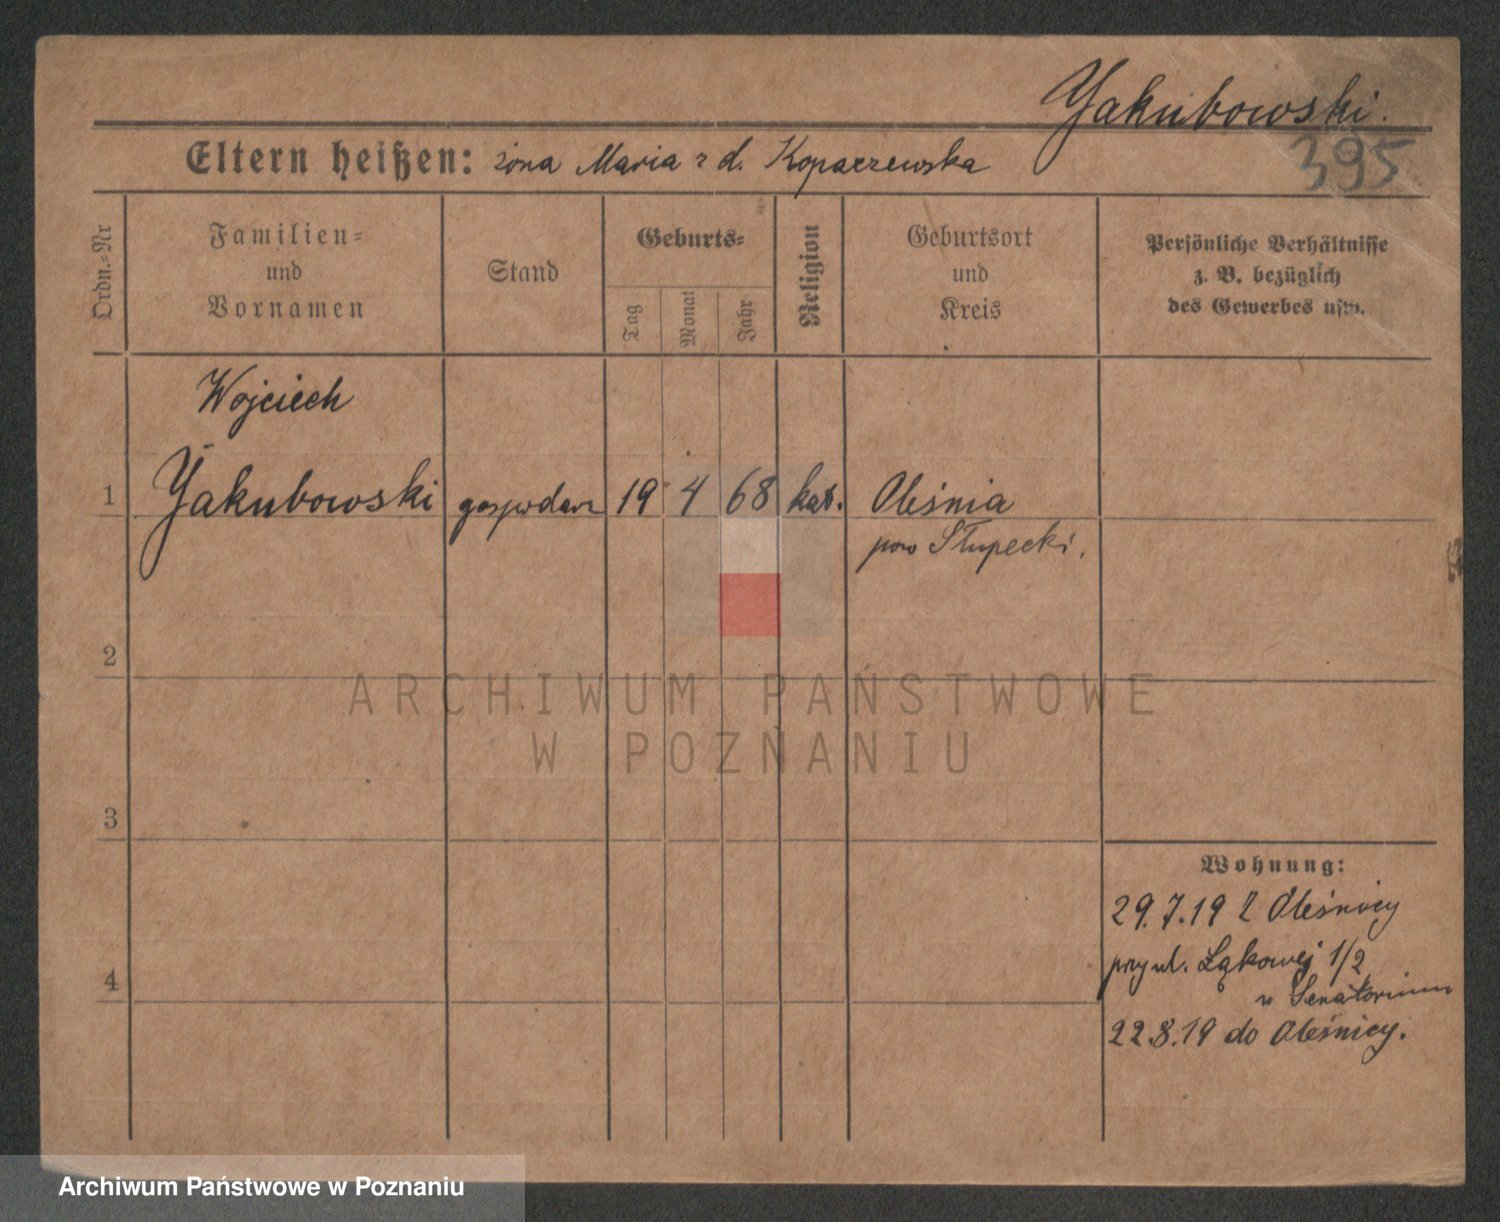 Yakubowski.
395
Eltern heißen: żona Maria z d. Kopaczewska
Ordn.-Nr
Familien- und Vornamen
Stand
Geburts-
Tag
Monat
Jahr
Religion
Geburtsort und Kreis
Persönliche Verhältnisse
z. B. bezüglich
des Gewerbes usw.
Wojciech
1 Yakubowski gospodarz 19 4 68 kat. Oleśnia
pow Słupecki.
2
ARCHIWUM PAŃSTWOWE
W POZNANIU
3
Wohnung:
29.7.19 Z Oleśnicy
przy ul. Łąkowej 1/2
4
w Senatorium
22.8.19 do Oleśnicy.
Archiwum Państwowe w Poznaniu